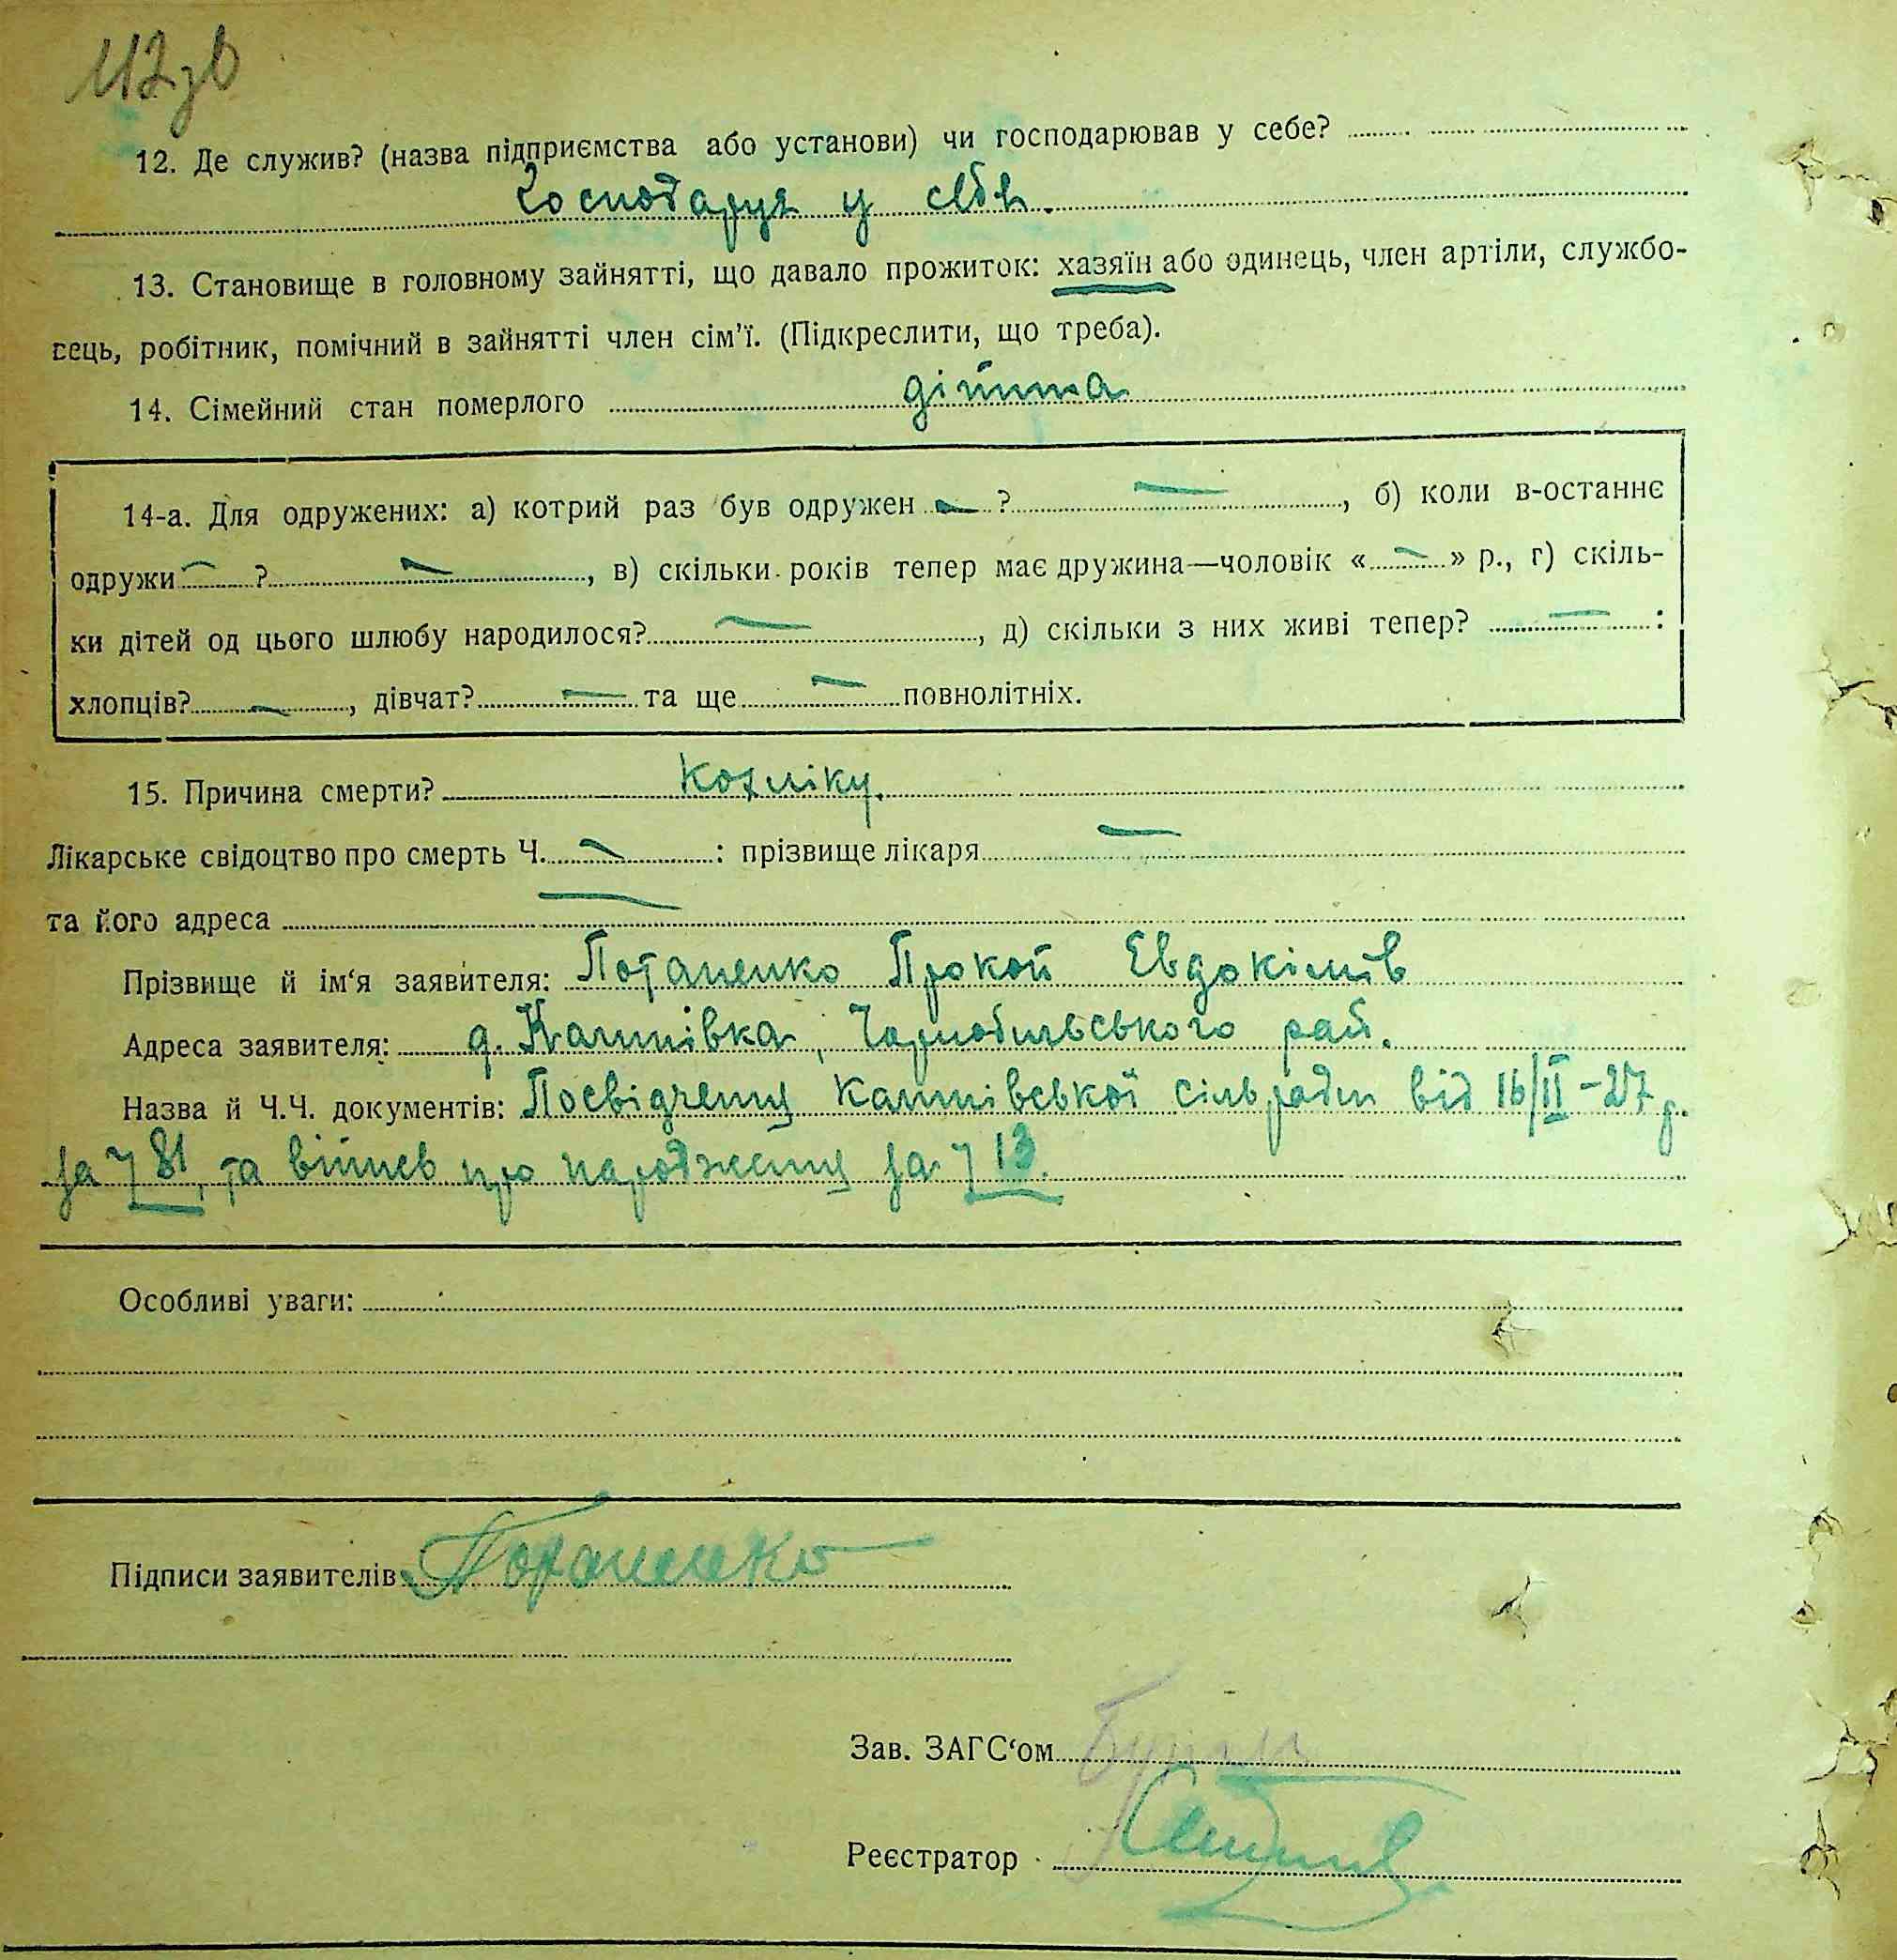 117зв
12. Де служив? (назва підприємства або установи) чи господарював у себе?
Господарує у себе.
13. Становище в головному зайнятті, що давало прожиток: хазяїн або одинець, член артіли, службо-
вець, робітник, помічний в зайнятті член сім'ї. (Підкреслити, що треба).
14. Сімейний стан померлого дітина
14-а. Для одружених: а) котрий раз був одружен — ? —, б) коли в-останнє
одружи — ? —, в) скільки років тепер має дружина—чоловік «—» р., г) скіль-
ки дітей од цього шлюбу народилося? —, д) скільки з них живі тепер? — :
хлопців? —, дівчат? — та ще — повнолітніх.
15. Причина смерти?
Лікарське свідоцтво про смерть Ч. — : прізвище лікаря —
та його адреса —
Прізвище й ім'я заявителя: Потапенко Прокоп Евдокімів
Адреса заявителя: Чорнобильського рай.
Назва й Ч.Ч. документів: Посвідчення сільради від 16/II–27 р.
за Ч 81, та витяг про народження за Ч 13.
Особливі уваги:
Підписи заявителів: Потапенко
Зав. ЗАГС'ом
Реєстратор